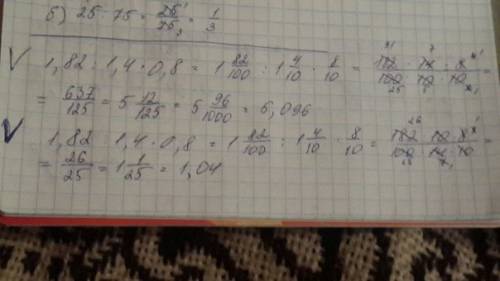 б) 25 : 75 = 25/75 = 1/3
V 1,82 : 1,4 · 0,8 = 1 82/100 : 1 4/10 · 8/10 = 182 · 14 · 8 / 100 · 10 · 10 =
= 637/125 = 5 12/125 = 5 96/1000 = 5,096
V 1,82 1,4 · 0,8 = 1 82/100 : 1 4/10 · 8/10 = 182 · 10 · 8 / 100 · 14 · 10 =
= 26/25 = 1 1/25 = 1,04